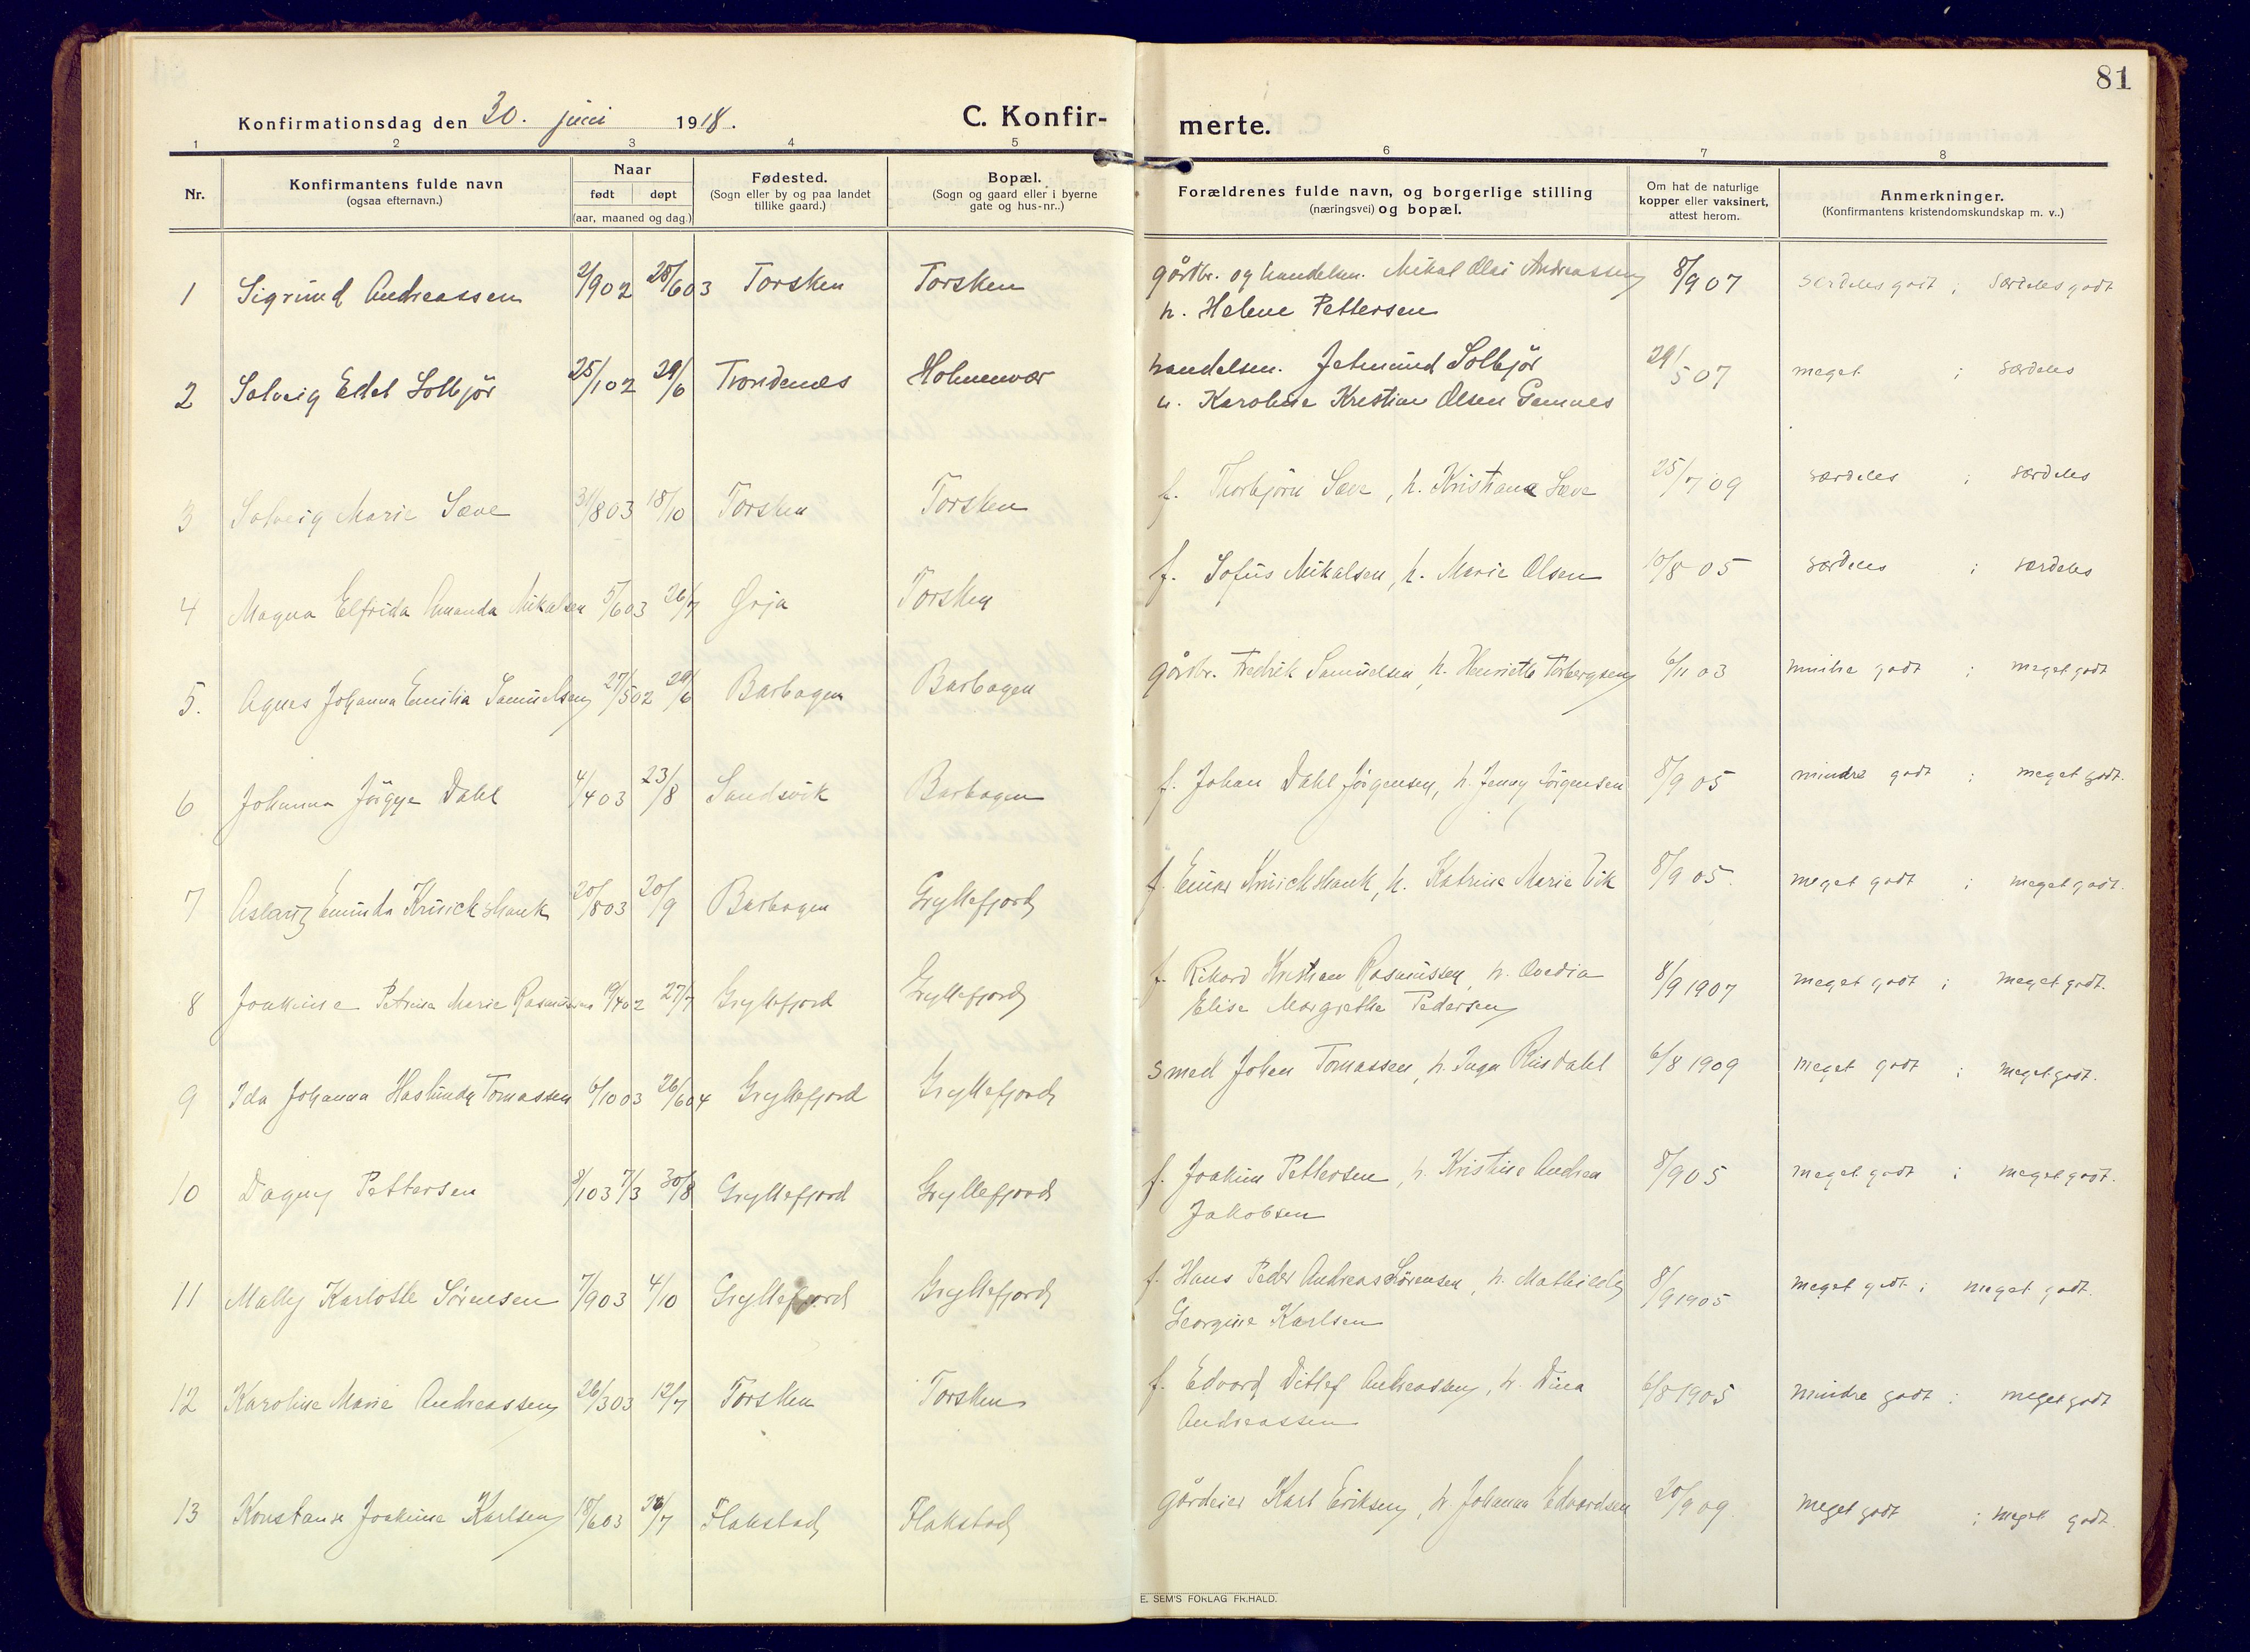 81
Konfirmationsdag den 30. juni 1918.
C. Konfirmerte.
1 2 3 4 5 6 7 8
Nr.
Konfirmantens fulde navn
(ogsaa efternavn.)
Naar
født døpt
(aar, maaned og dag.)
Fødested.
(Sogn eller by og paa landet
tillike gaard.)
Bopæl.
(Sogn og gaard eller i byerne
gate og hus-nr..)
Forældrenes fulde navn, og borgerlige stilling
(næringsvei) og bopæl.
Om hat de naturlige
kopper eller vaksinert,
attest herom.
Anmerkninger.
(Konfirmantens kristendomskundskap m. v..)
1 Sigrund Andreassen 2/9 02 28/6 03 Torsken Torsken gårdbr. og handelsm. Mikal Olai Andreassen 8/9 07 særdeles godt ; særdeles godt
h. Helene Pettersen
2 Solveig Edel Solbjör 25/1 02 29/6 Trondenes Holmenvær handelsm. Jetmund Solbjör 29/5 07 meget ; særdeles
h. Karoline Kristine Olsen Gamnes
3 Solveig Marie Sæve 31/8 03 18/10 Torsken Torsken f. Thorbjörn Sæve, h. Kristiane Sæve 25/7 09 særdeles ; særdeles
4 Magna Elfrida Amanda Mikalsen 5/6 03 26/7 Grja Torsken f. Sofus Mikalsen, h. Marie Olsen 10/8 05 særdeles ; særdeles
5. Agnes Johanna Emilia Samuelsen 27/5 02 29/6 Barbogen Barbogen gårdbr. Fredrik Samuelsen, h. Henriette Torbergsen 6/11 03 mindre godt ; meget godt
6 Johanna Jörgine Dahl 4/4 03 23/8 Sandsvik Barbogen f. Johan Dahl Jörgensen, h. Jenny Jörgensen 8/9 05 mindre godt ; meget godt.
7 Aslaug Eminda Kruickshank 20/8 03 20/9 Barbogen Gryllefjord f. Einar Kruickshank, h. Katrine Marie Vik 8/9 05. meget godt ; meget godt.
8 Joakime Petrina Marie Rasmussen 19/4 02 27/7 Gryllefjord Gryllefjord f. Rikard Kristian Rasmussen, h. Ovedia 8/9 1907 meget godt ; meget godt.
Elise Margrethe Pedersen
9 Ida Johanna Haslunda Tomassen 6/10 03 26/6 04 Gryllefjord Gryllefjord smed Johan Tomassen, h. Inga Risdahl 6/8 1909 meget godt ; meget godt.
10 Dagny Pettersen 8/1 03 7/3 30/8 Gryllefjord Gryllefjord f. Joakim Pettersen, h. Kristine Andrea 8/9 05 meget godt ; meget godt.
Jakobsen
11 Mally Karlotte Sörensen 7/9 03 4/10 Gryllefjord Gryllefjord f. Hans Peder Andreas Sörensen, h. Mathilde 8/9 1905 meget godt ; meget godt.
Georgine Karlsen
12 Karoline Marie Andreassen 26/3 03 12/7 Torsken Torsken f. Edvard Ditlef Andreassen, h. Dina 6/8 1905 mindre godt ; meget godt
Andreassen
13 Konstanse Joakime Karlsen 18/6 03 26/7 Flakstad Flakstad gårdeier Karl Eriksen, h. Johanna Edvardsen 20/9 09. meget godt ; meget godt.
E. SEM'S FORLAG FR.HALD.